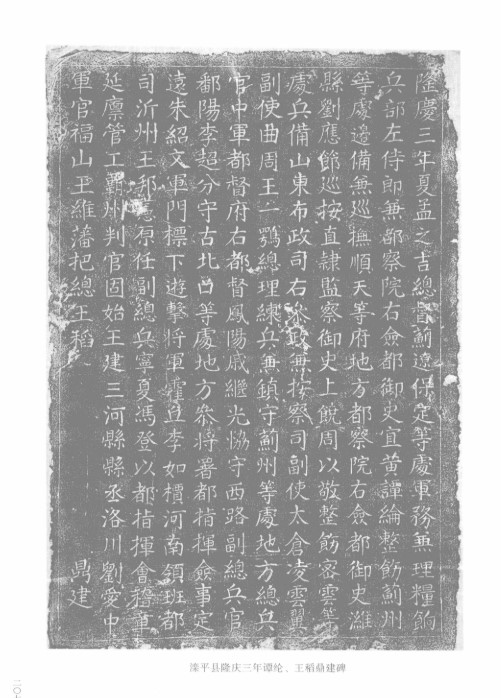 隆慶三年夏孟之吉總督薊遼保定等處軍務兼理糧餉
兵部左侍郎兼都察院右僉都御史宜黃譚綸整飭薊州
等處邊備兼巡撫順天等府地方都察院右僉都御史濰
縣劉應節巡按直隸監察御史上饒周以敬整飭密雲等
處兵備山東布政司右參政兼按察司副使太倉凌雲翼
副使曲周王一鶚總理練兵兼鎮守薊州等處地方總兵
官中軍都督府右都督鳳陽戚繼光協守西路副總兵官
鄱陽李超分守古北口等處地方參將署都指揮僉事定
遠朱紹文軍門標下遊擊將軍 李如檟河南領班都
司沂州王 原任副總兵寧夏馮登以都指揮僉 
延廪管工霸州判官固始王建三河縣縣丞洛川劉愛中
軍官福山王維藩把總王稻 鼎建
滦平县隆庆三年谭纶、王稻鼎建碑
二〇